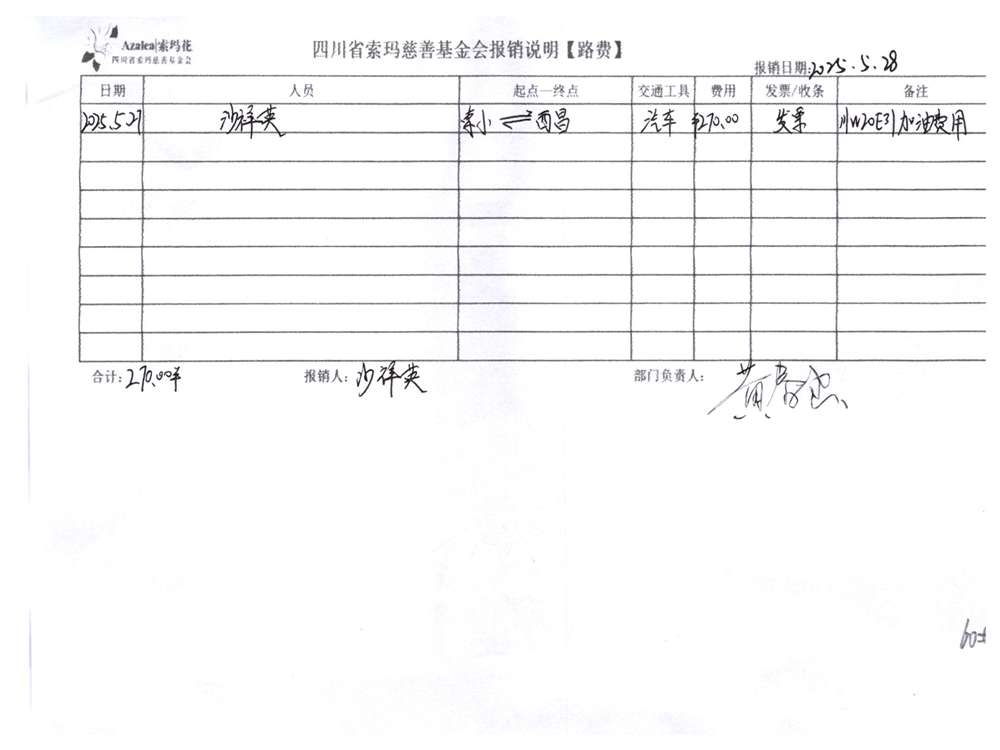 Azalea|索玛花
四川省索玛慈善基金会
四川省索玛慈善基金会报销说明【路费】
报销日期:2025.5.28
日期 人员 起点—终点 交通工具 费用 发票/收条 备注
2025.5.27 沙祥英 索小⇌西昌 汽车 ¥270.00 发票 川W20E31加油费用
合计:270.00羊 报销人:沙祥英 部门负责人: